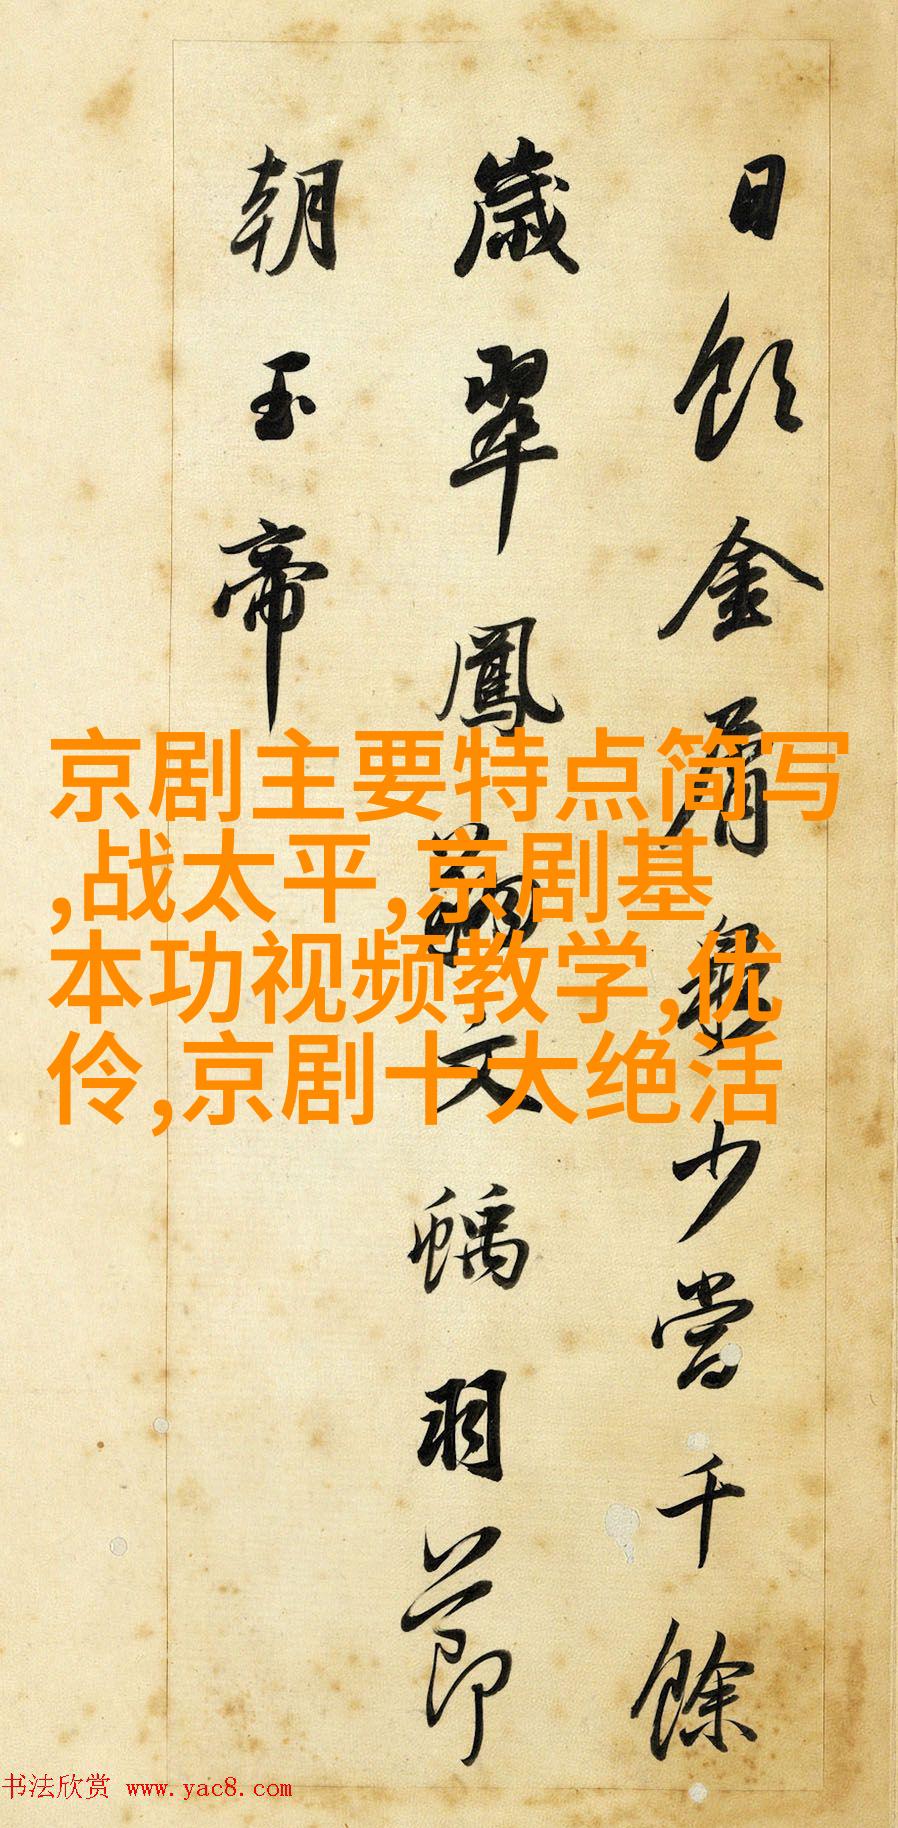 日飲金屑泉少當千餘
歲翠鳳文螭羽節
朝玉帝
京剧主要特点简写
,战太平,京剧基
本功视频教学,优
伶,京剧十大绝活
书法欣赏 www.yac8.com